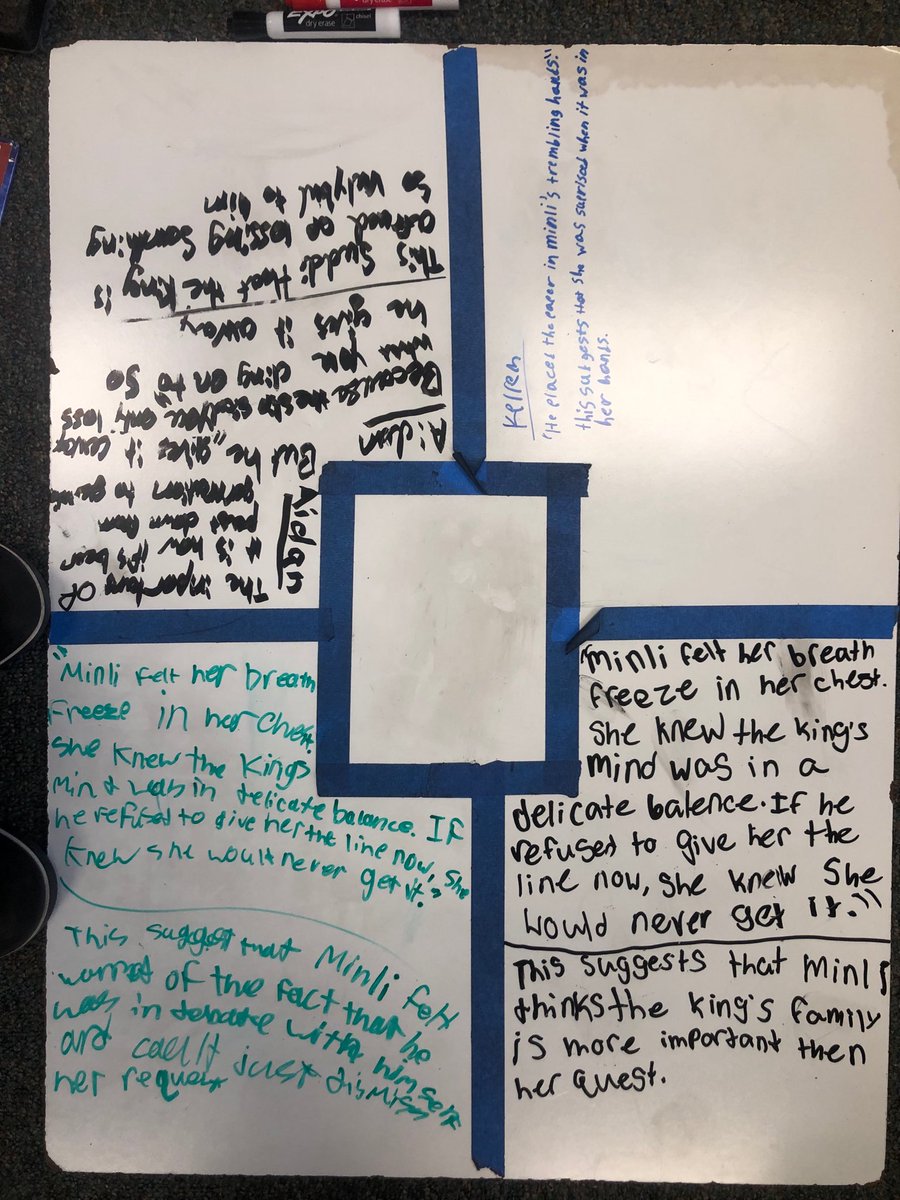 EXPO
dry erase
chisel
Aidan
The importans OF
it is how it's been
past down from
genration to
But he gives it
Aidan
Because the you only loss
when you cling on to so
he gives it away
This that the King is
of lossing Somthing
So valybul to him
"He places the paper in minli's trembling hands."
this suggests that she was when it was in
her hands.
"Minli felt her breath
Freeze in her Chest.
She Knew the Kings
Mind was in delicate balance. If
he refused to give her the line now, she
Knew she would never get it."
This suggest that Minli felt
of the fact that he
was in debate with himself
and just dismiss
her request
"Minli felt her breath
freeze in her chest.
She knew the king's
mind was in a
delicate balence. If he
refused to give her the
line now, she knew She
would never get it."
This suggests that Minli
thinks the king's family
is more important then
her quest.